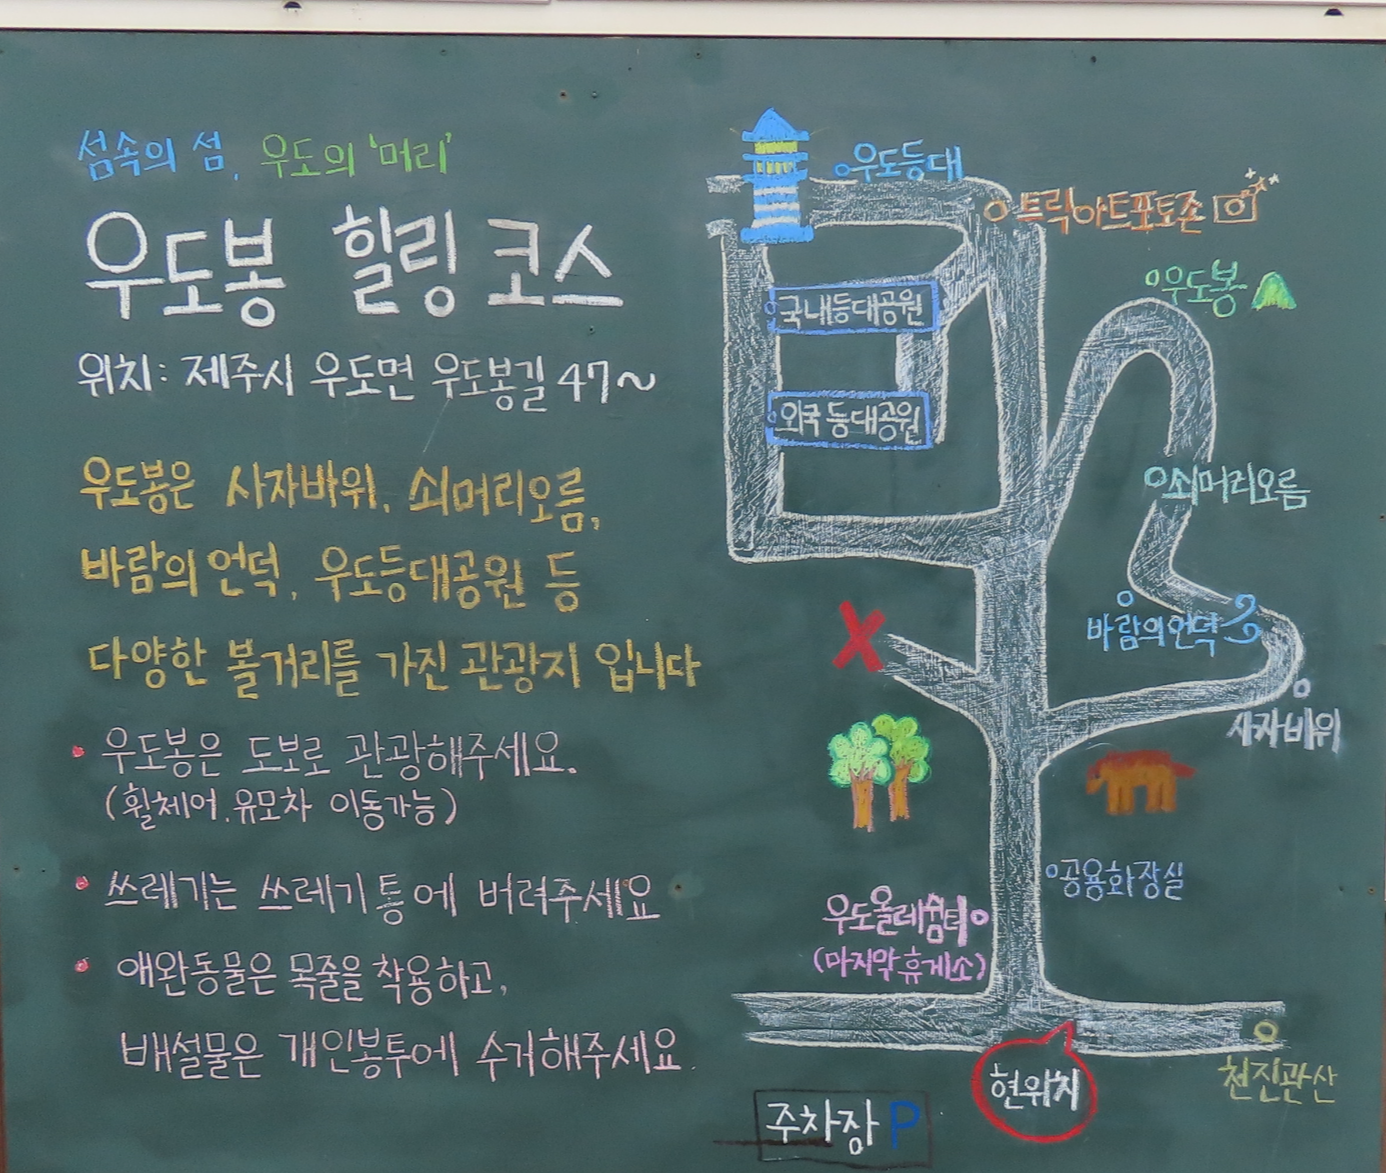 섬속의 섬, 우도의 '머리'
우도봉 힐링 코스
위치: 제주시 우도면 우도봉길 47~
우도봉은 사자바위, 쇠머리오름,
바람의 언덕, 우도등대공원 등
다양한 볼거리를 가진 관광지 입니다
• 우도봉은 도보로 관광해주세요.
(휠체어.유모차 이동가능)
• 쓰레기는 쓰레기통에 버려주세요
• 애완동물은 목줄을 착용하고,
배설물은 개인봉투에 수거해주세요.
우도등대
트릭아트포토존
우도봉
국내등대공원
외국 등대공원
쇠머리오름
바람의언덕
사자바위
X
공용화장실
우도올레쉼터
(마지막 휴게소)
현위치
천진관산
주차장 P